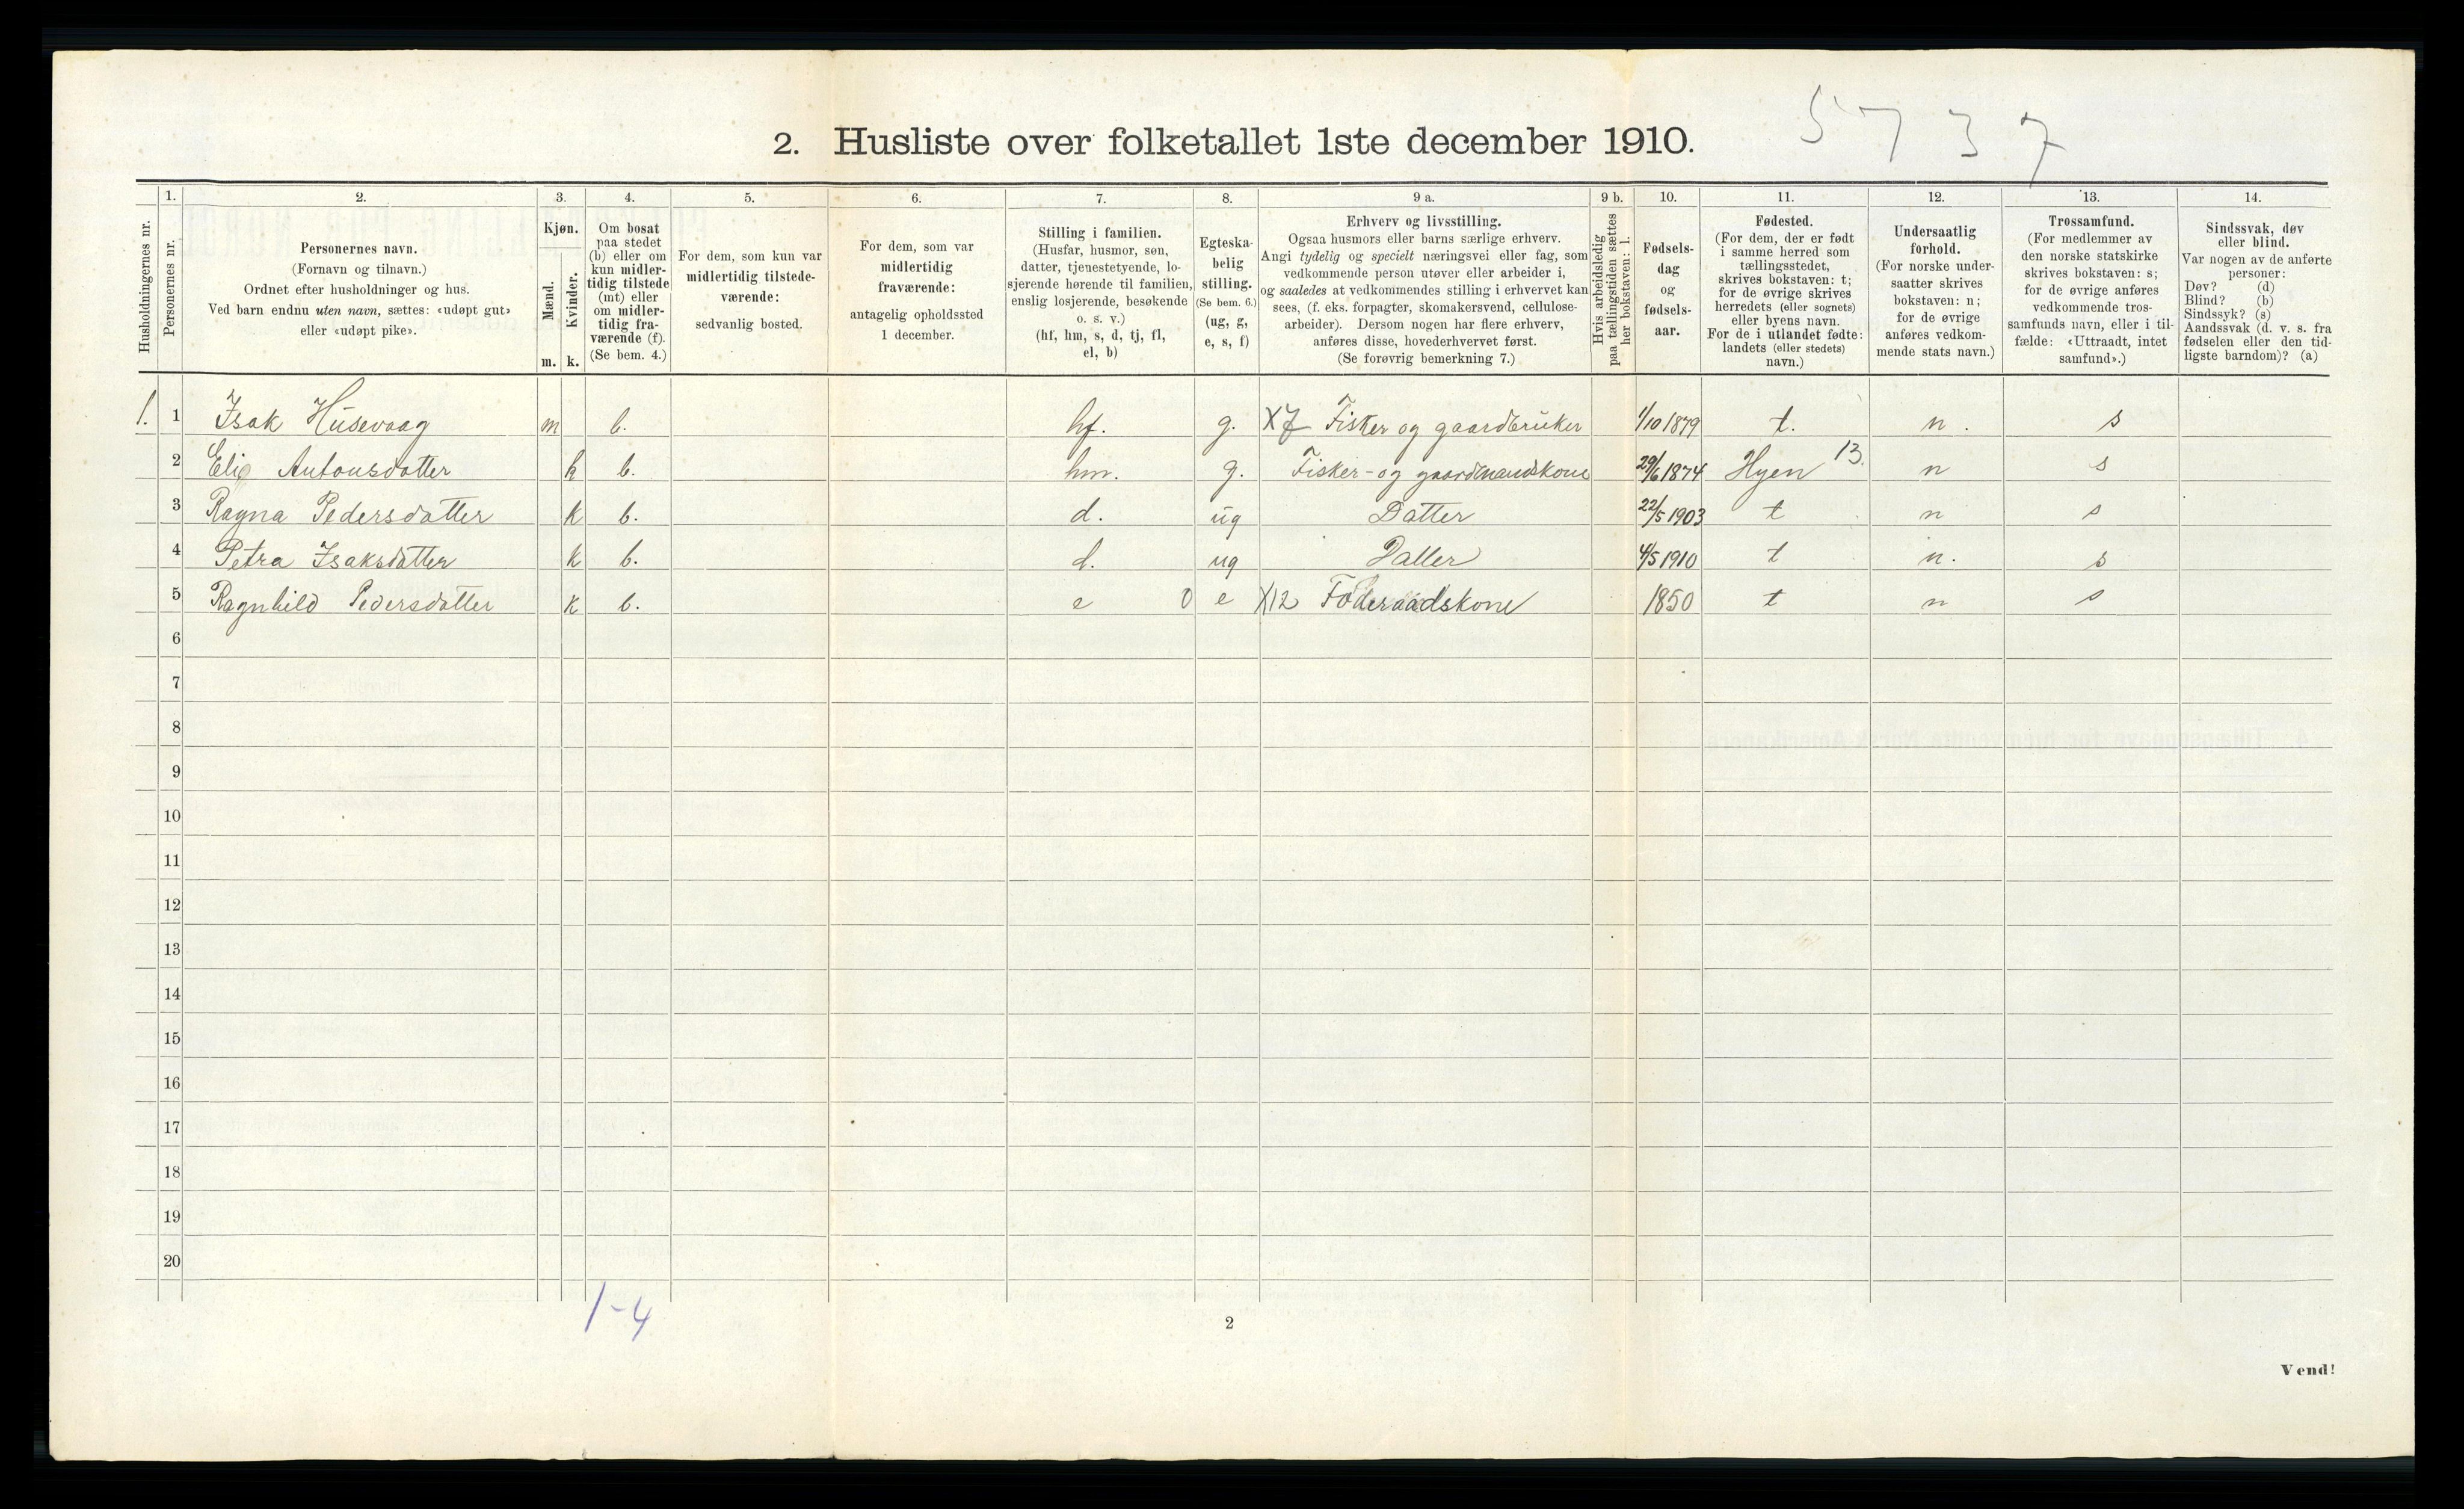 5 7 3 7
2. Husliste over folketallet 1ste december 1910.
Husholdningernes nr.
1.
Personernes nr.
2.
Personernes navn.
(Fornavn og tilnavn.)
Ordnet efter husholdninger og hus.
Ved barn endnu uten navn, sættes: «udøpt gut»
eller «udøpt pike».
3.
Kjøn.
Mænd. Kvinder.
m. k.
4.
Om bosat
paa stedet
(b) eller om
kun midler-
tidig tilstede
(mt) eller
om midler-
tidig fra-
værende (f).
(Se bem. 4.)
5.
For dem, som kun var
midlertidig tilstede-
værende:
sedvanlig bosted.
6.
For dem, som var
midlertidig
fraværende:
antagelig opholdssted
1 december.
7.
Stilling i familien.
(Husfar, husmor, søn,
datter, tjenestetyende, lo-
sjerende hørende til familien,
enslig losjerende, besøkende
o. s. v.)
(hf, hm, s, d, tj, fl,
el, b)
8.
Egteska-
belig
stilling.
(Se bem. 6.)
(ug, g,
e, s, f)
9 a.
Erhverv og livsstilling.
Ogsaa husmors eller barns særlige erhverv.
Angi tydelig og specielt næringsvei eller fag, som
vedkommende person utøver eller arbeider i,
og saaledes at vedkommendes stilling i erhvervet kan
sees, (f. eks. forpagter, skomakersvend, cellulose-
arbeider). Dersom nogen har flere erhverv,
anføres disse, hovederhvervet først.
(Se forøvrig bemerkning 7.)
9 b.
Hvis arbeidsledig
paa tællingstiden sættes
her bokstaven: l.
10.
Fødsels-
dag
og
fødsels-
aar.
11.
Fødested.
(For dem, der er født
i samme herred som
tællingsstedet,
skrives bokstaven: t;
for de øvrige skrives
herredets (eller sognets)
eller byens navn.
For de i utlandet fødte:
landets (eller stedets)
navn.)
12.
Undersaatlig
forhold.
(For norske under-
saatter skrives
bokstaven: n;
for de øvrige
anføres vedkom-
mende stats navn.)
13.
Trossamfund.
(For medlemmer av
den norske statskirke
skrives bokstaven: s;
for de øvrige anføres
vedkommende tros-
samfunds navn, eller i til-
fælde: «Uttraadt, intet
samfund».)
14.
Sindssvak, døv
eller blind.
Var nogen av de anførte
personer:
Døv? (d)
Blind? (b)
Sindssyk? (s)
Aandssvak (d. v. s. fra
fødselen eller den tid-
ligste barndom)? (a)
1. 1 Isak Husevaag m b. hf. g. X7 Fisker og gaardbruker 1/10 1879 t. n. s
2 Elie Antonsdatter k b. hm. g. Fisker- og gaardmandskone 29/6 1874 Hyen 13. n s
3 Ragna Pedersdatter k b. d. ug Datter 22/5 1903 t n s
4 Petra Isaksdatter k b. d. ug Datter 4/5 1910 t n. s
5 Ragnhild Pedersdatter k b. e 0 e X12 Føderaadskone 1850 t n s
6
7
8
9
10
11
12
13
14
15
16
17
18
19
20
1-4
2
Vend!